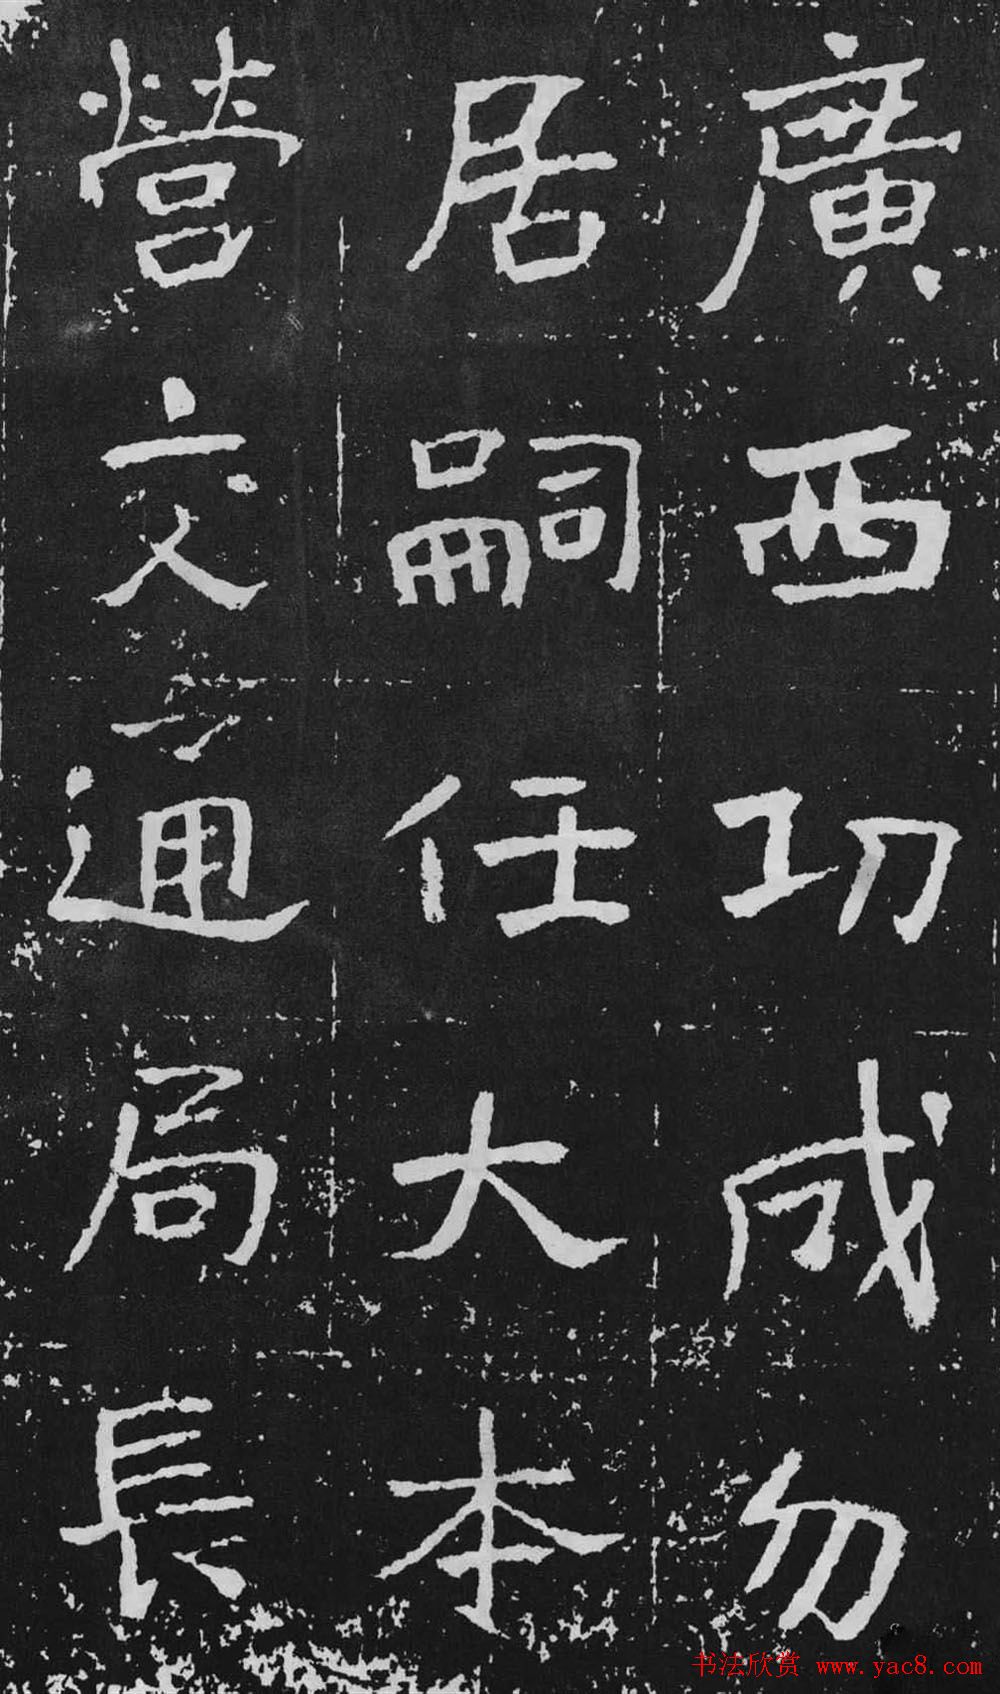 廣西功成勿
居嗣任大本
營交通局長
书法欣赏 www.yac8.com